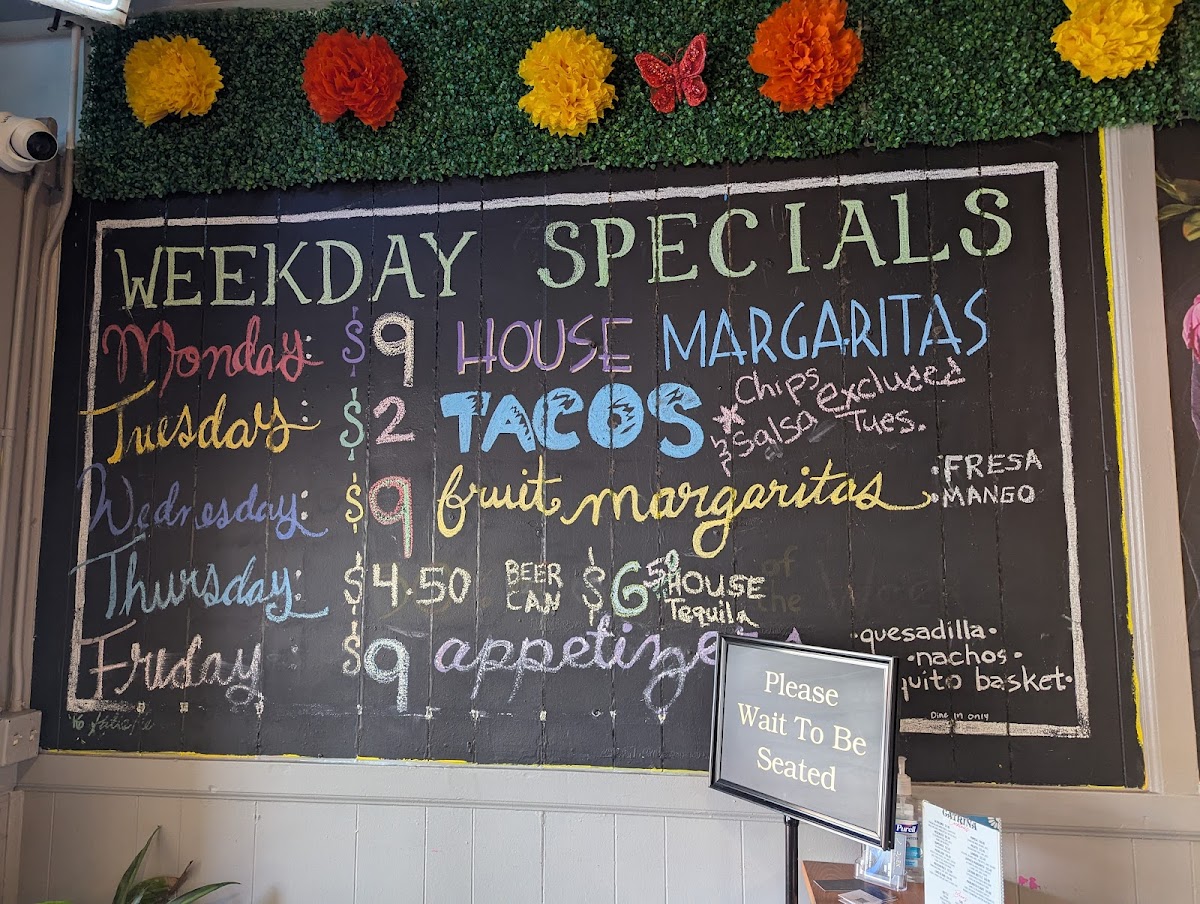 WEEKDAY SPECIALS
Monday: $9 HOUSE MARGARITAS
Tuesday: $2 TACOS *Chips & Salsa excluded Tues.
Wednesday: $9 fruit margaritas • FRESA • MANGO
Thursday: $4.50 BEER CAN $6.50 HOUSE Tequila
of the
Friday $9 appetize
•quesadilla•
•nachos•
quito basket•
Dine in only
'16
Please
Wait To Be
Seated
Purell
CATRINA